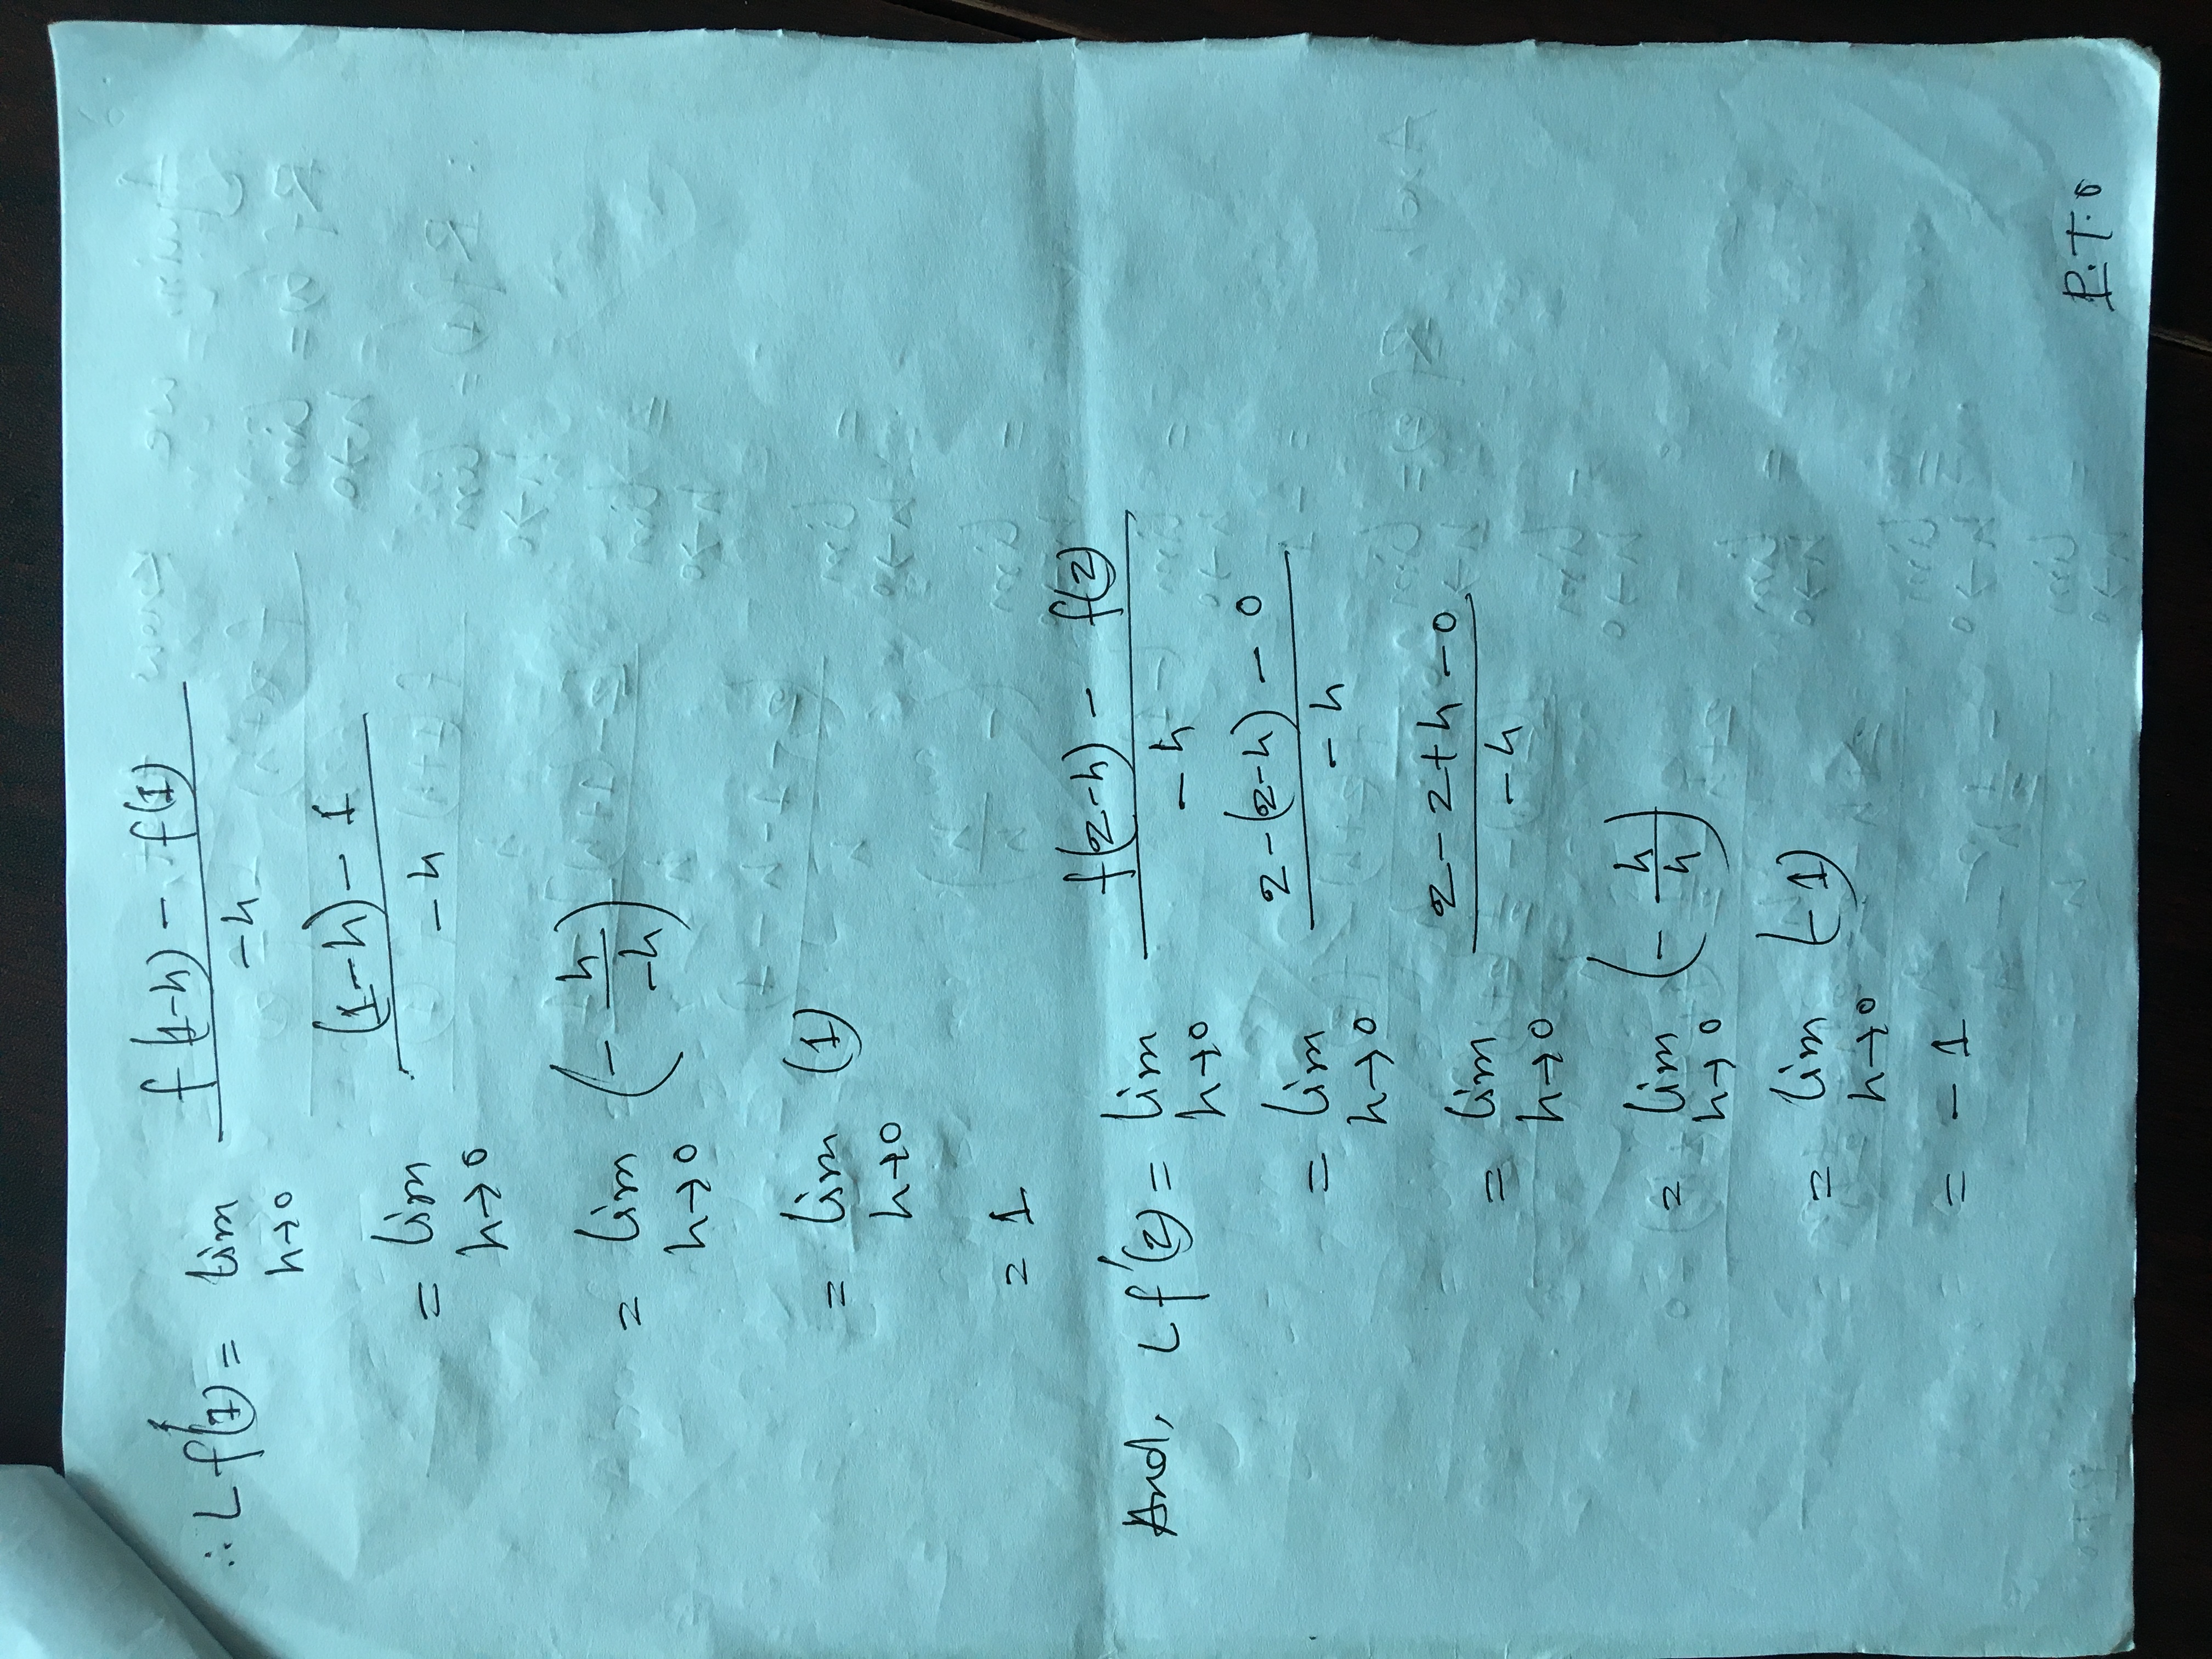 ∴ Lf'(1) = lim h→0 (f(1-h) - f(1))/(-h)
= lim h→0 ((1-h) - 1)/(-h)
= lim h→0 (- h/(-h))
= lim h→0 (1)
= 1
And, Lf'(2) = lim h→0 (f(2-h) - f(2))/(-h)
= lim h→0 (2-(2-h) - 0)/(-h)
= lim h→0 (2-2+h-0)/(-h)
= lim h→0 (- h/h)
= lim h→0 (-1)
= -1
P.T.O